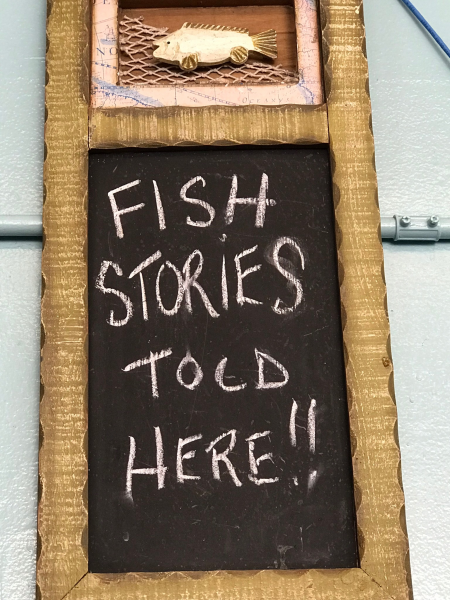 FISH
STORiES
TOLD
HERE!!